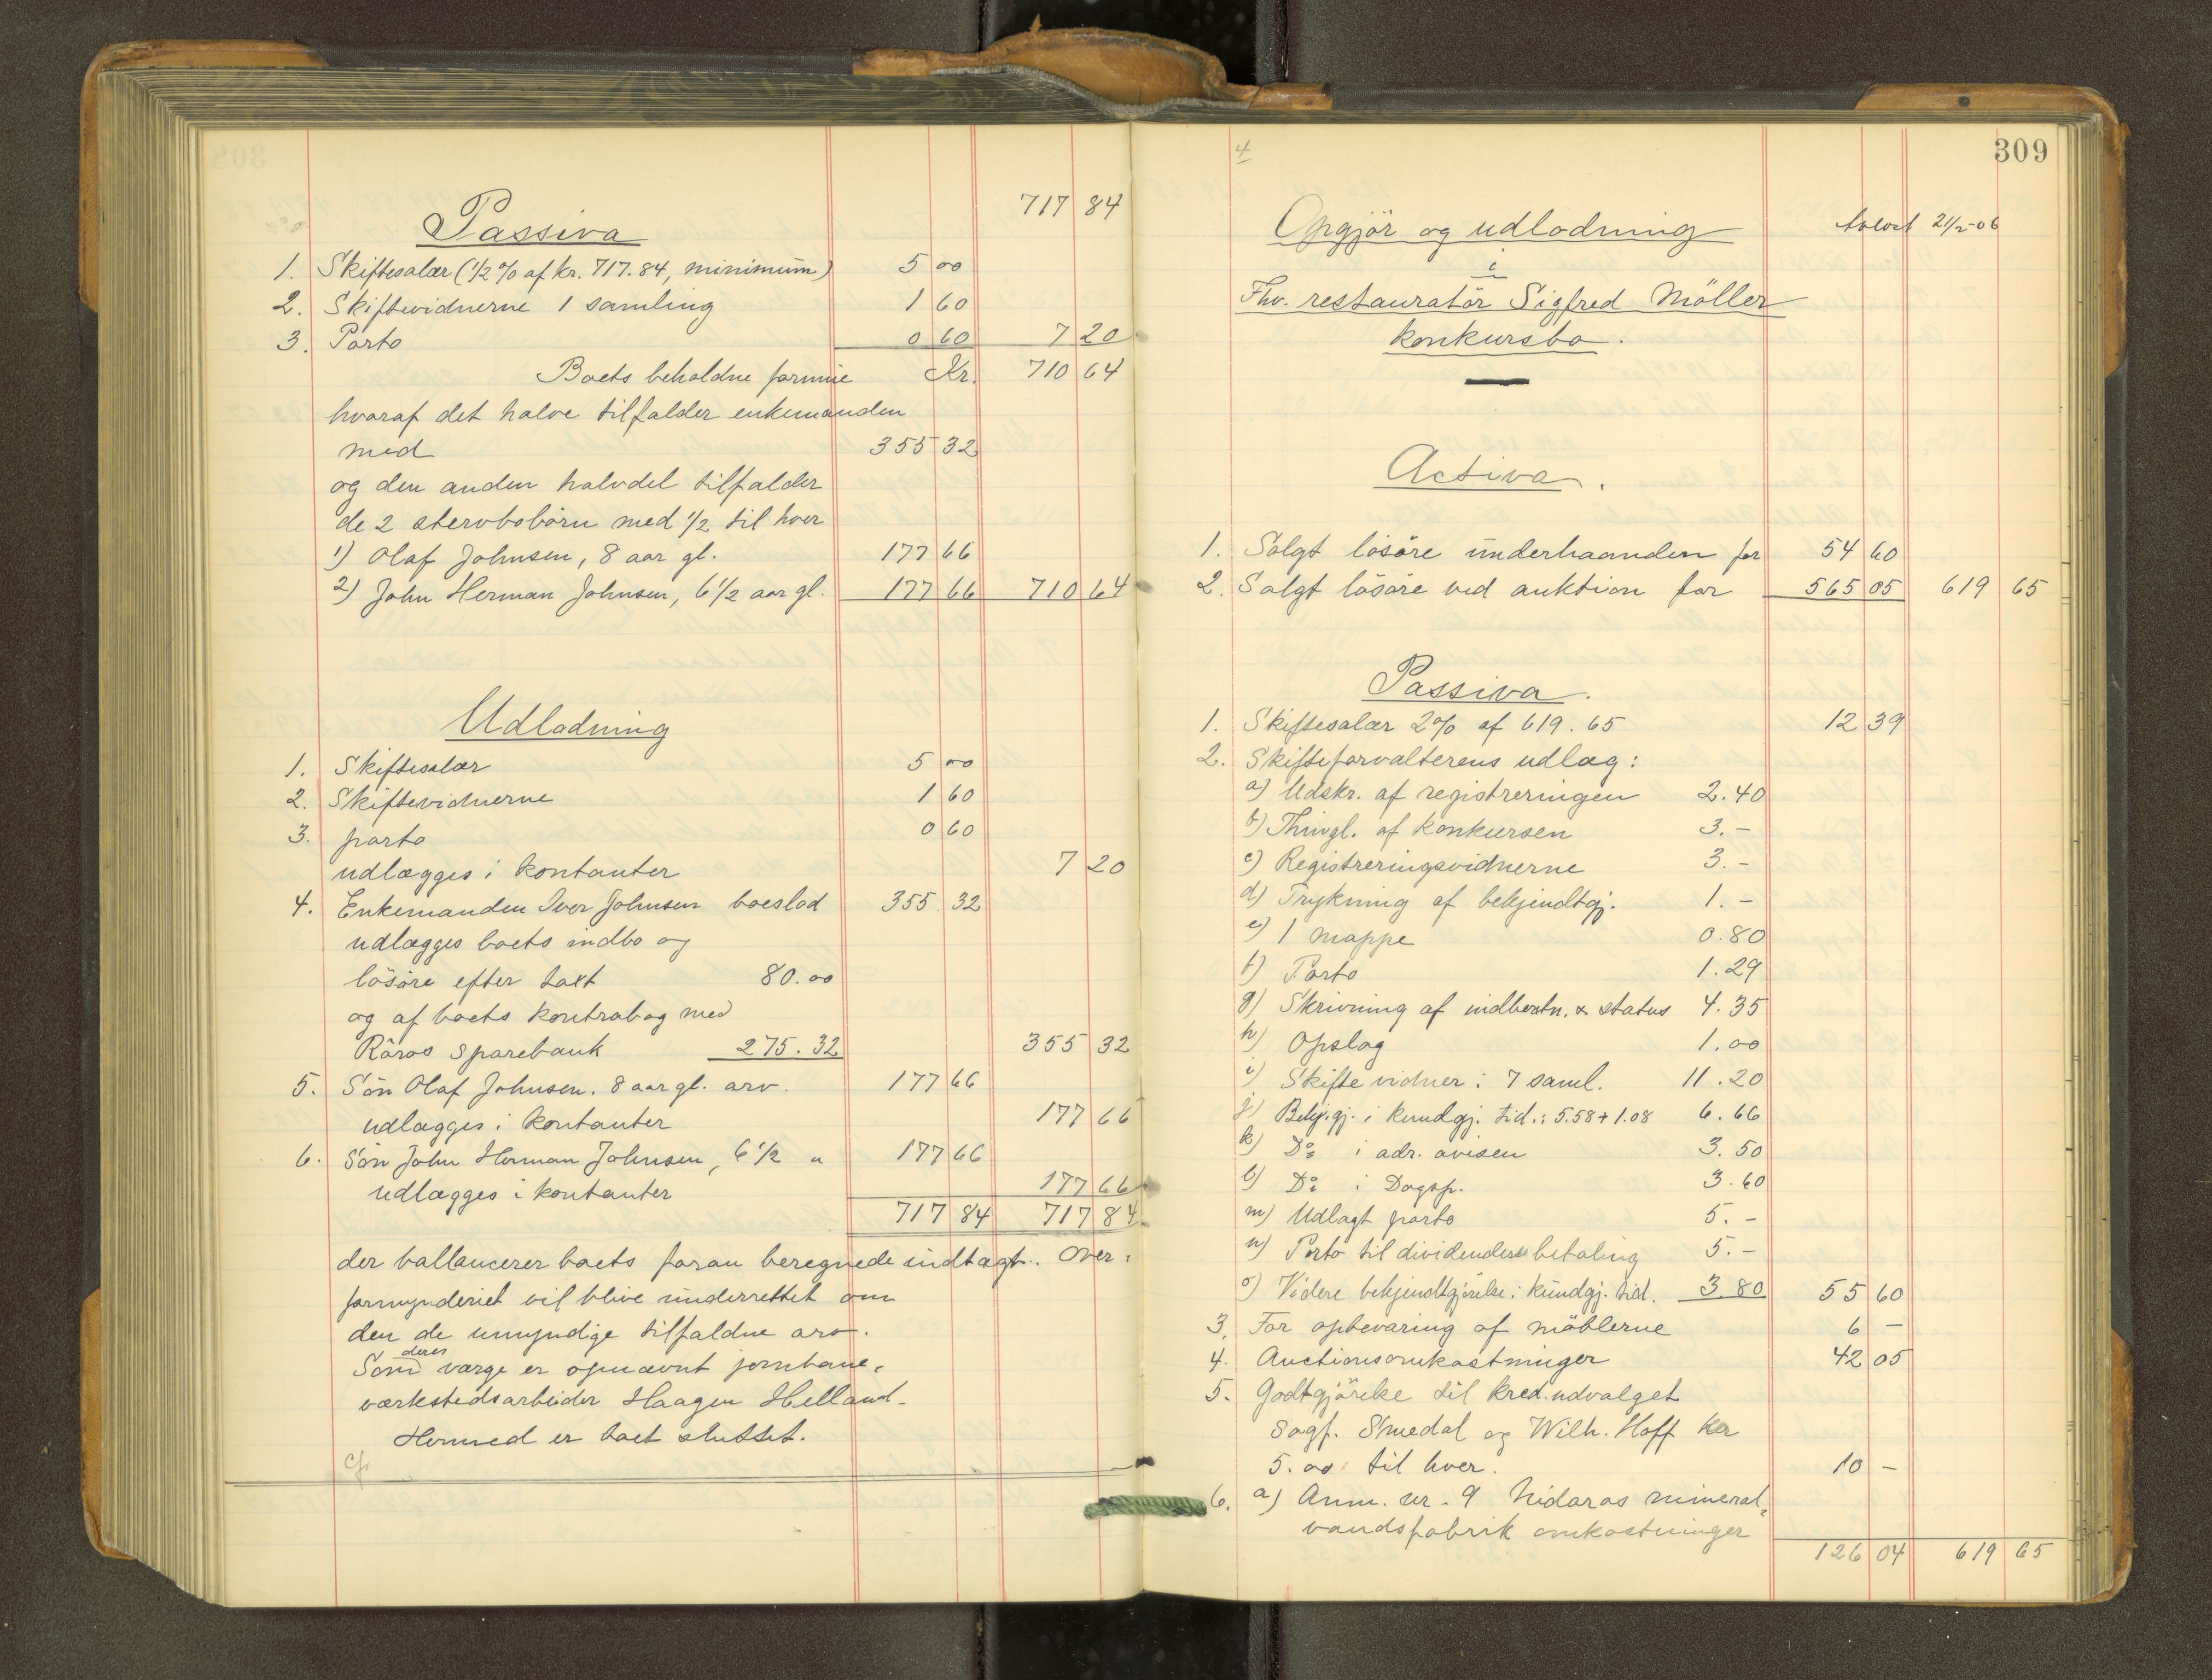 717 84
Passiva
1. Skiftesalær (1/2 % af kr. 717.84, minimum) 5 00
2. Skiftevidnerne 1 samling 1 60
3. Porto 0 60 7 20
Boets beholdne formue Kr. 710 64
hvoraf det halve tilfalder enkemanden
med 355 32
og den anden halvdel tilfalder
de 2 stervbobörn med 1/2 til hver
1) Olaf Johnsen, 8 aar gl. 177 66
2) John Herman Johnsen, 6 1/2 aar gl. 177 66 710 64
Udlodning
1. Skiftesalær 5 00
2. Skiftevidnerne 1 60
3. porto 0 60
udlægges i kontanter 7 20
4. Enkemanden Iver Johnsen boeslod 355 32
udlægges boets indbo og
lösöre efter taxt 80.00
og af boets kontrabog med
Röros sparebank 275.32 355 32
5. Sön Olaf Johnsen. 8 aar gl. arv. 177 66
udlægges i kontanter 177 66
6. Sön John Herman Johnsen, 6 1/2 " 177 66
udlægges i kontanter 177 66
717 84 717 84
der ballancerer boets foran beregnede indtægt. Over=
formynderiet vil blive underrettet om
den de umyndige tilfaldne arv.
Som deres værge er opnævnt jernbane=
værkstedsarbeider Haagen Helland.
Hermed er boet sluttet.
309
4
Opgjör og udlodning 21/2-06
i
Fhv. restauratör Sigfred Möller
konkursbo.
Activa.
1. Solgt lösöre underhaanden for 54 60
2. Solgt lösöre ved auktion for 565 05 619 65
Passiva.
1. Skiftesalær 2% af 619.65 12 39
2. Skifteforvalterens udlæg:
a) Udskr. af registreringen 2.40
b) Thingl. af konkursen 3.-
c) Registreringsvidnerne 3.-
d) Trykning af bekjendtgj. 1.-
e) 1 mappe 0.80
f) Porto 1.29
g) Skrivning af indberetn. & status 4.35
h) Opslag 1.00
i) Skifte vidner: 7 saml. 11.20
j) Bekj.gj. i kundgj. tid.: 5.58+1.08 6.66
k) Do i adr. avisen 3.50
l) Do i Dagsp. 3.60
m) Udlagt porto 5.-
n) Porto til dividendens betaling 5.-
o) Videre bekjendtgjörelse i kundgj. tid. 3.80 55 60
3. For opbevaring af möblerne 6 -
4. Auctionsomkostninger 42 05
5. Godtgjörelse til kred.udvalget
sagf. Smedal og Wilh. Hoff kr
5.00 til hver. 10 -
6. a) Anm. nr. 9 Nidaros mineral=
vandsfabrik omkostninger
126 04 619 65